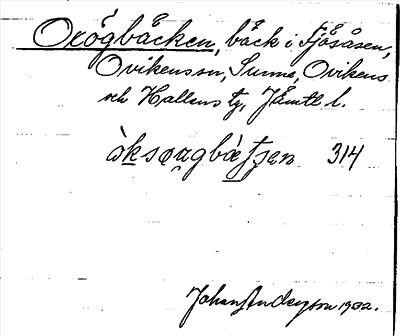 Oxögbäcken, bäck i Fjösåsen,
Ovikens sn, Sunne, Ovikens
och Hallens tg, Jämtl l.
314
Johan Anderson 1932.